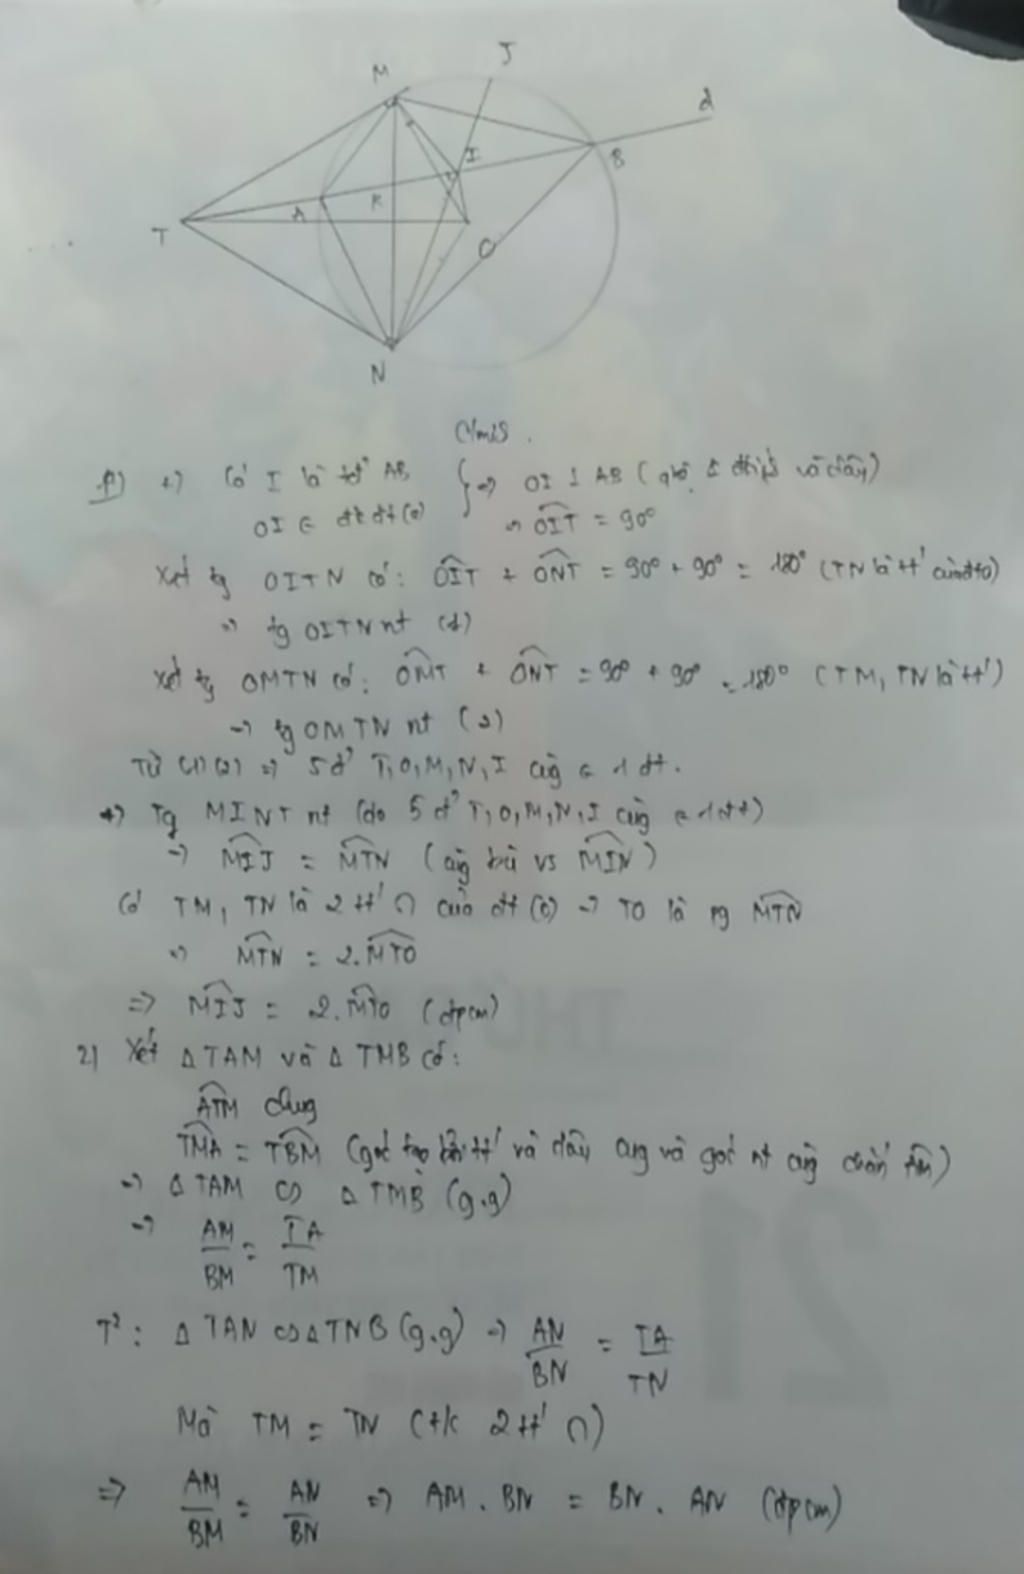 M
J
d
I
B
T
A
K
O
N
Cmis.
1) +) Có I là tđ' AB
OI ∈ đk đt (O)
} => OI ⊥ AB (qhệ ⊥ đk và dây)
=> OIT = 90°
Xét tg OITN có: OIT + ONT = 90° + 90° = 180° (TN là tt' của đtO)
=> tg OITN nt (1)
Xét tg OMTN có: OMT + ONT = 90° + 90° = 180° (TM, TN là tt')
=> tg OMTN nt (2)
Từ (1) (2) => 5 đ' T, O, M, N, I cùg ∈ 1 đt.
+) Tg MINT nt (do 5 đ' T, O, M, N, I cùg ∈ 1 đt)
=> MIJ = MTN (cùg bù vs MIN)
Có TM, TN là 2 tt' ∩ của đt (O) => TO là pg MTN
=> MTN = 2. MTO
=> MIJ = 2. MTO (đpcm)
2) Xét Δ TAM và Δ TMB có:
ATM chug
TMA = TBM (góc tạo bởi tt' và dây cug và góc nt cùg chắn AM)
=> Δ TAM ∽ Δ TMB (g.g)
=> AM/BM = TA/TM
T²: Δ TAN ∽ Δ TNB (g.g) => AN/BN = TA/TN
Mà TM = TN (t/c 2 tt' ∩)
=> AM/BM = AN/BN => AM . BN = BN . AN (đpcm)